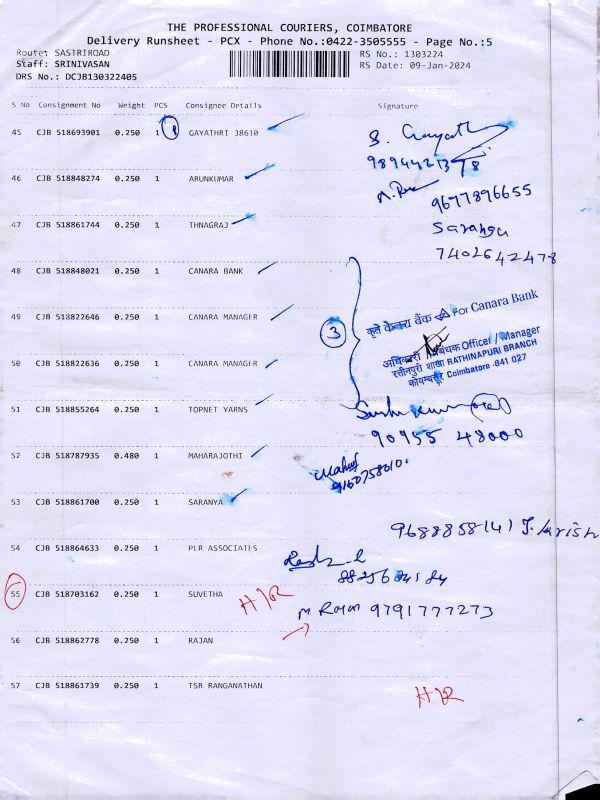 THE PROFESSIONAL COURIERS, COIMBATORE
Delivery Runsheet - PCX - Phone No.:0422-3505555 - Page No.:5
Route: SASTRIROAD RS No.: 1303224
Staff: SRINIVASAN RS Date: 09-Jan-2024
DRS No.: DCJB130322405
S No Consignment No Weight PCS Consignee Details Signature
45 CJB 518693901 0.250 1 GAYATHRI 38610
S. Gayath
46 CJB 518848274 0.250 1 ARUNKUMAR
9677896655
47 CJB 518861744 0.250 1 THNAGRAJ
Saranya
7402642478
48 CJB 518848021 0.250 1 CANARA BANK
49 CJB 518822646 0.250 1 CANARA MANAGER
3
कृते केनरा बैंक For Canara Bank
50 CJB 518822636 0.250 1 CANARA MANAGER
अधिकारी प्रबंधक Officer / Manager
रत्तीनपुरी शाखा RATHINAPURI BRANCH
कोयम्बत्तूर Coimbatore -641 027
51 CJB 518855264 0.250 1 TOPNET YARNS
90955 48000
52 CJB 518787935 0.480 1 MAHARAJOTHI
53 CJB 518861700 0.250 1 SARANYA
9688858141
54 CJB 518864633 0.250 1 PLR ASSOCIATES
55 CJB 518703162 0.250 1 SUVETHA
9791777273
56 CJB 518862778 0.250 1 RAJAN
57 CJB 518861739 0.250 1 TSR RANGANATHAN